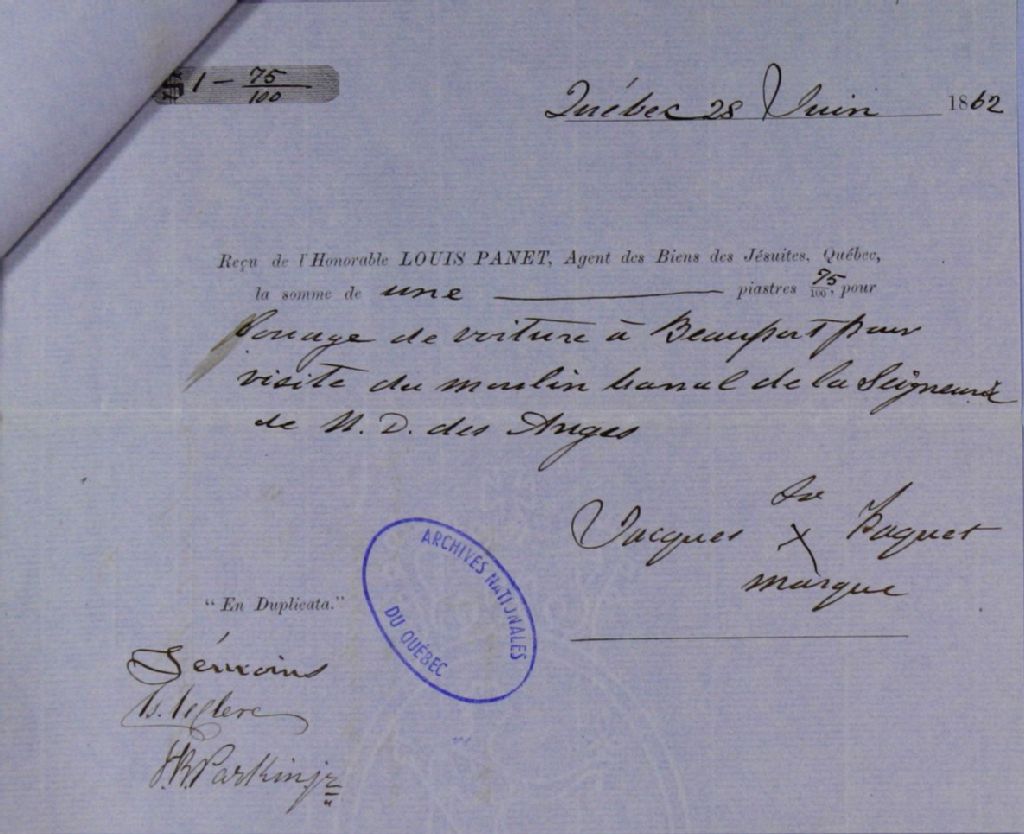 1 - 75/100
Québec 28 Juin 1862
Reçu de l'Honorable LOUIS PANET, Agent des Biens des Jésuites, Québec,
la somme de une piastres 75/100, pour
Louage de voiture à Beauport pour
visite du moulin banal de la Seigneurie
de N. D. des Anges
sa
Jacques X Paquet
marque
"En Duplicata."
Témoins
Leclerc
Parkin jr
ARCHIVES NATIONALES
DU QUÉBEC